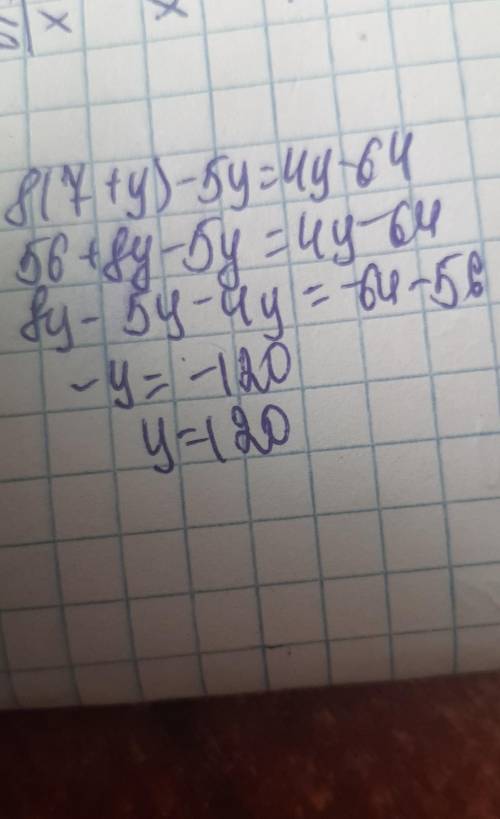 8(7+y)-5y=4y-64
56+8y-5y=4y-64
8y-5y-4y=-64-56
-y=-120
y=120